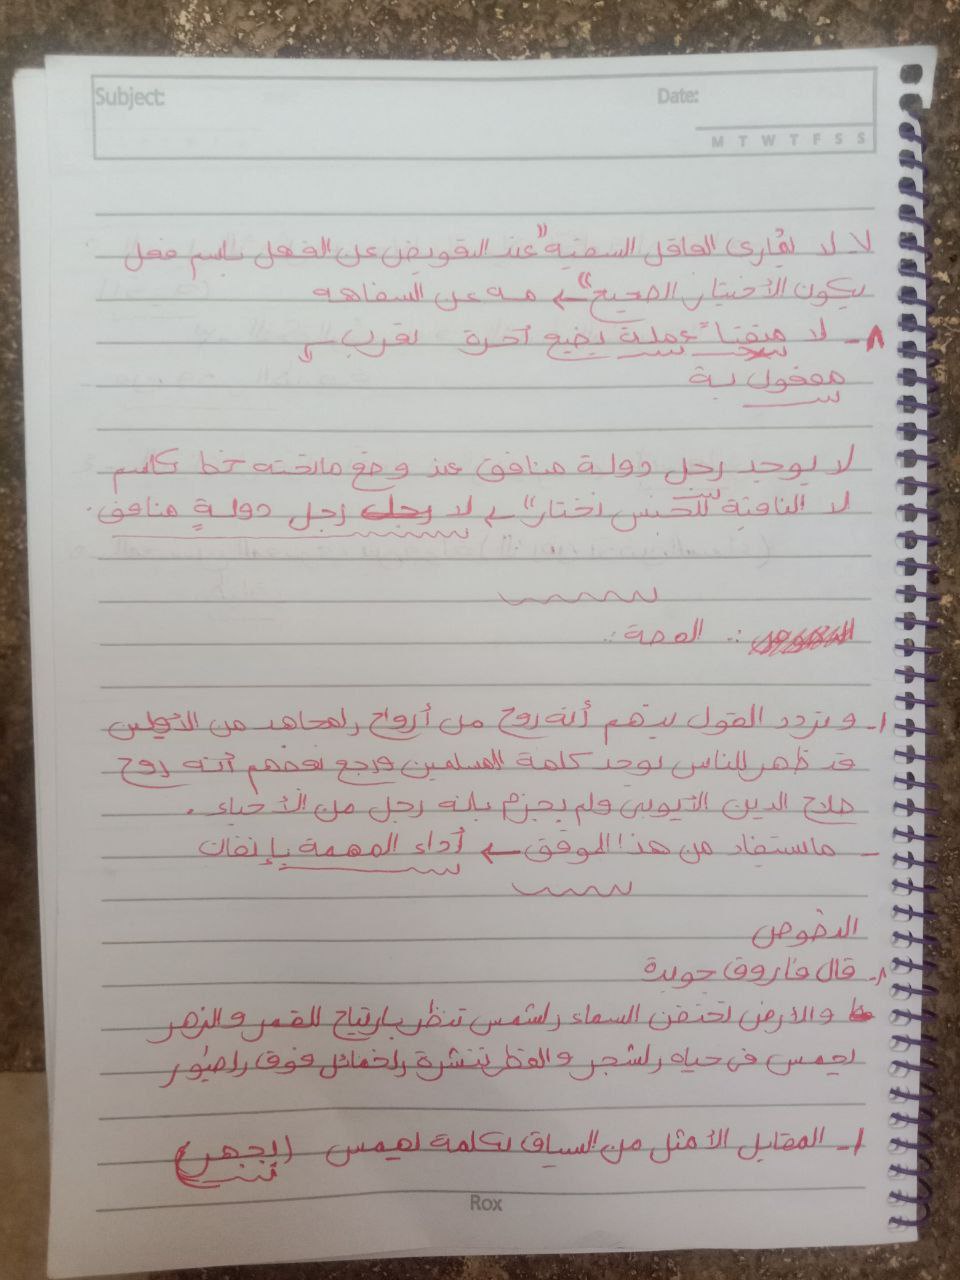 Subject:
Date:
M T W T F S S
٧ لا يُمارى العاقل السفيه "عند التعويض عن الفعل باسم فعل
يكون الأختيار الصحيح" ← مه عن السفاهه
٨ - لا متقناً عملة يضيع أجرة تعرب
مفعول بة
لا يوجد رجل دولة منافق عند وضع ماتحته خط كاسم
لا النافية للجنس نختار" ← لا رجل دولةٍ منافق.
القصة :.
١- وتردد القول بينهم أنه روح من أرواح المجاهد من الأولين
قد ظهر للناس يوحد كلمة المسلمين ورجع بعضهم أنه روح
صلاح الدين الأيوبى ولم يجزم بانه رجل من الأحياء .
- مانستفاد من هذا الموقف ← أداء المهمة بإتقان
النصوص
٨- قال فاروق جويدة
والأرض تحتضن السماء والشمس تنظر بارتياح للقمر والزهر
يهمس فى حياه الشجر والعطر تنشرة الخمائل فوق
١- المقابل الأمثل من السياق لكلمة يهمس (يجهر)
Rox